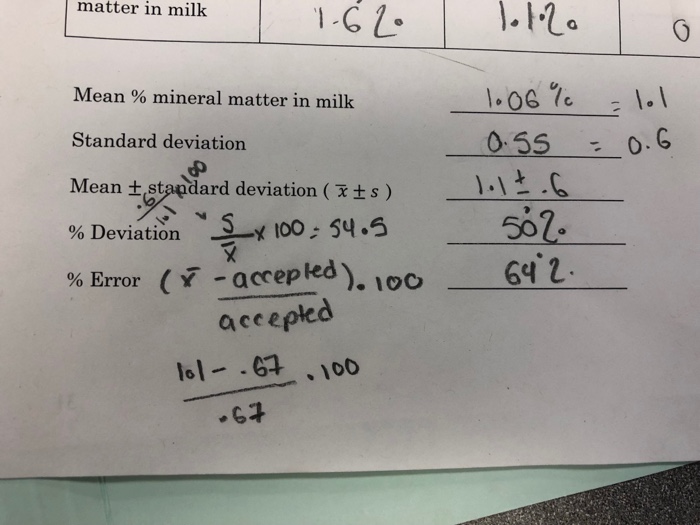 matter in milk 1.6% 1.1% 0
Mean % mineral matter in milk 1.06% = 1.1
Standard deviation 0.55 = 0.6
Mean ± standard deviation ( x̄ ± s ) 1.1 ± .6
.6/1.1 × 100
% Deviation S/x̄ × 100 = 54.5 50%
% Error (x̄ - accepted). 100 64%.
accepted
1.1 - .67 . 100
.67